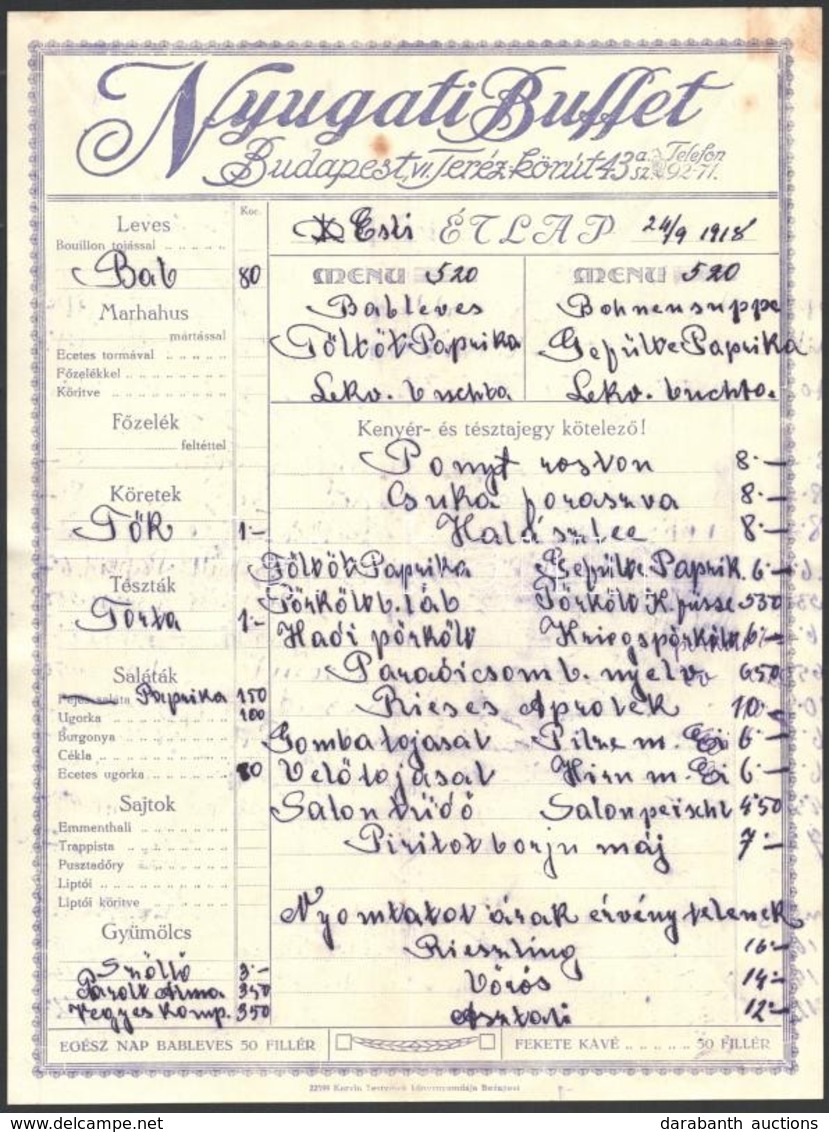 Nyugati Buffet
Budapest, VI. Teréz-körút 43 a. sz. Telefon 92-71.
Kor.
Leves
Bouillon tojással
Bab 80
Marhahus
mártással
Ecetes tormával
Főzelékkel
Köritve
Főzelék
feltéttel
Köretek
Tök 1.-
Tészták
Torta 1.-
Saláták
Fejes saláta Paprika 150
Ugorka 100
Burgonya
Cékla
Ecetes ugorka 80
Sajtok
Emmenthali
Trappista
Pusztadőry
Liptói
Liptói köritve
Gyümölcs
Szőllő 3.-
Párolt Alma 350
Vegyes Komp. 350
Esti ÉTLAP 24/9 1918
MENU 520
Bableves
Töltöt Paprika
Lekv. buchta
MENU 520
Bohnensuppe
Gefülte Paprika
Lekv. buchta.
Kenyér- és tésztajegy kötelező!
Ponyt roston 8.-
Csuka poraszva 8.-
Halászlee 8.-
Töltöt Paprika Gefülte Paprik. 6.-
Pörkölt b. láb Pörkölt K. füsse 530
Hadi pörkölt Kriegspörkölt 6.-
Paradicsom b. nyelv 650
Rieses Aprolék 10.-
Gomba tojásal Pilze m. Ei 6.-
Velő tojásal Hirn m. Ei 6.-
Salon tüdő Salonpeischl 450
Piritot borju máj 7.-
Nyomtatot árak érvénytelenek
Rieszling 16.-
Vörös 14.-
Asztali 12.-
EGÉSZ NAP BABLEVES 50 FILLÉR
FEKETE KÁVÉ 50 FILLÉR
22598 Korvin Testvérek könyvnyomdája Budapest
darabanth auctions